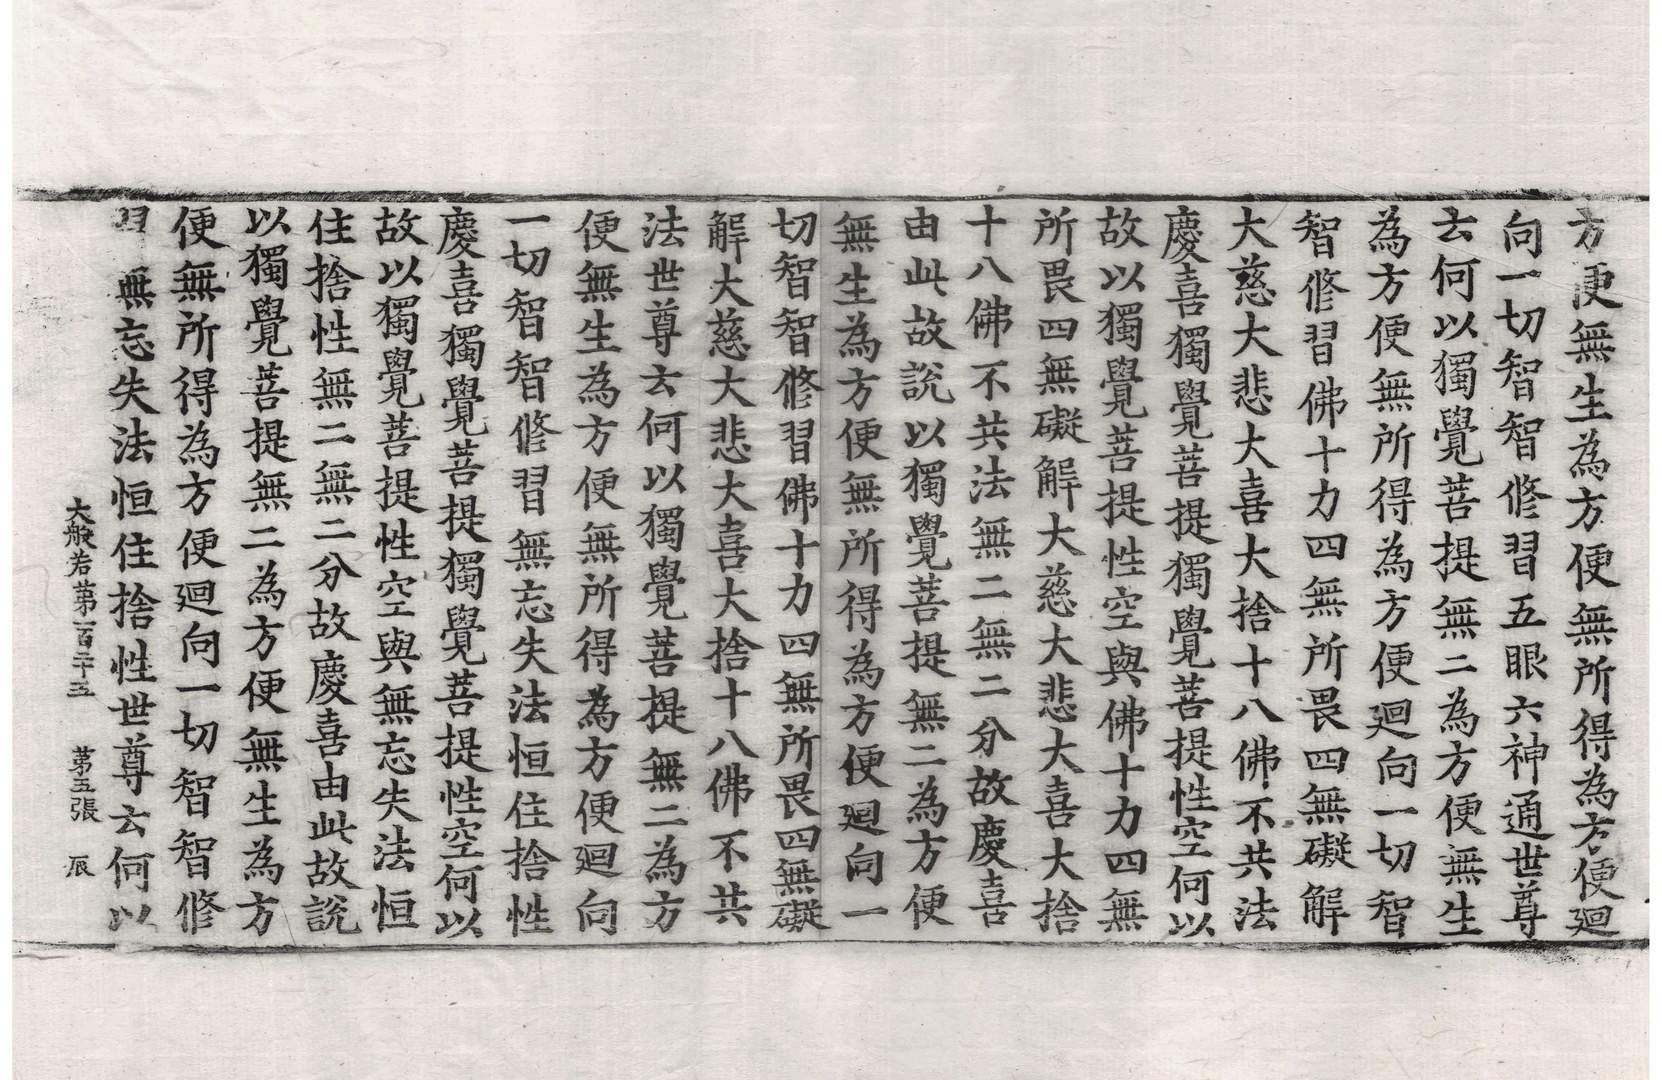 方便無生為方便無所得為方便迴
向一切智智修習五眼六神通世尊
云何以獨覺菩提無二為方便無生
為方便無所得為方便迴向一切智
智修習佛十力四無所畏四無礙解
大慈大悲大喜大捨十八佛不共法
慶喜獨覺菩提獨覺菩提性空何以
故以獨覺菩提性空與佛十力四無
所畏四無礙解大慈大悲大喜大捨
十八佛不共法無二無二分故慶喜
由此故說以獨覺菩提無二為方便
無生為方便無所得為方便迴向一
切智智修習佛十力四無所畏四無礙
解大慈大悲大喜大捨十八佛不共
法世尊云何以獨覺菩提無二為方
便無生為方便無所得為方便迴向
一切智智修習無忘失法恒住捨性
慶喜獨覺菩提獨覺菩提性空何以
故以獨覺菩提性空與無忘失法恒
住捨性無二無二分故慶喜由此故說
以獨覺菩提無二為方便無生為方
便無所得為方便迴向一切智智修
習無忘失法恒住捨性世尊云何以
大般若第一百二十五 第五張 辰